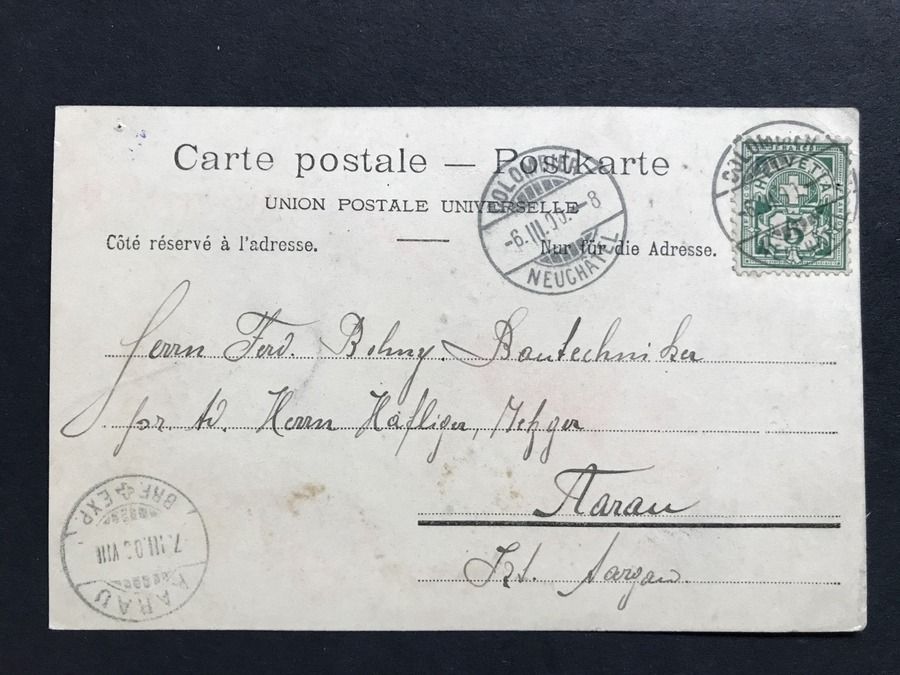 Carte postale — Postkarte
UNION POSTALE UNIVERSELLE
Côté réservé à l'adresse.
Nur für die Adresse.
COLOMBIER
-6.III.00.-8
NEUCHATEL
FRANCO
HELVETIA
5
Herrn Ferd. Bohny. Bautechniker
pr. Ad. Herrn Häfliger, Metzger
Aarau
Kt. Aargau.
AARAU
7.III.00 VIII
BRF. EXP.